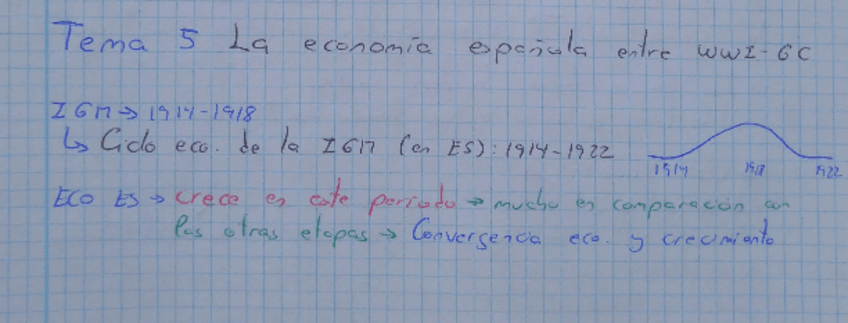 Tema 5 La economía española entre WWI-GC
IGM → 1914-1918
↳ Ciclo eco. de la IGM (en ES): 1914-1922
1914 1918 1922
ECO ES → crece en este periodo → mucho en comparación con
las otras etapas → Convergencia eco. y crecimiento